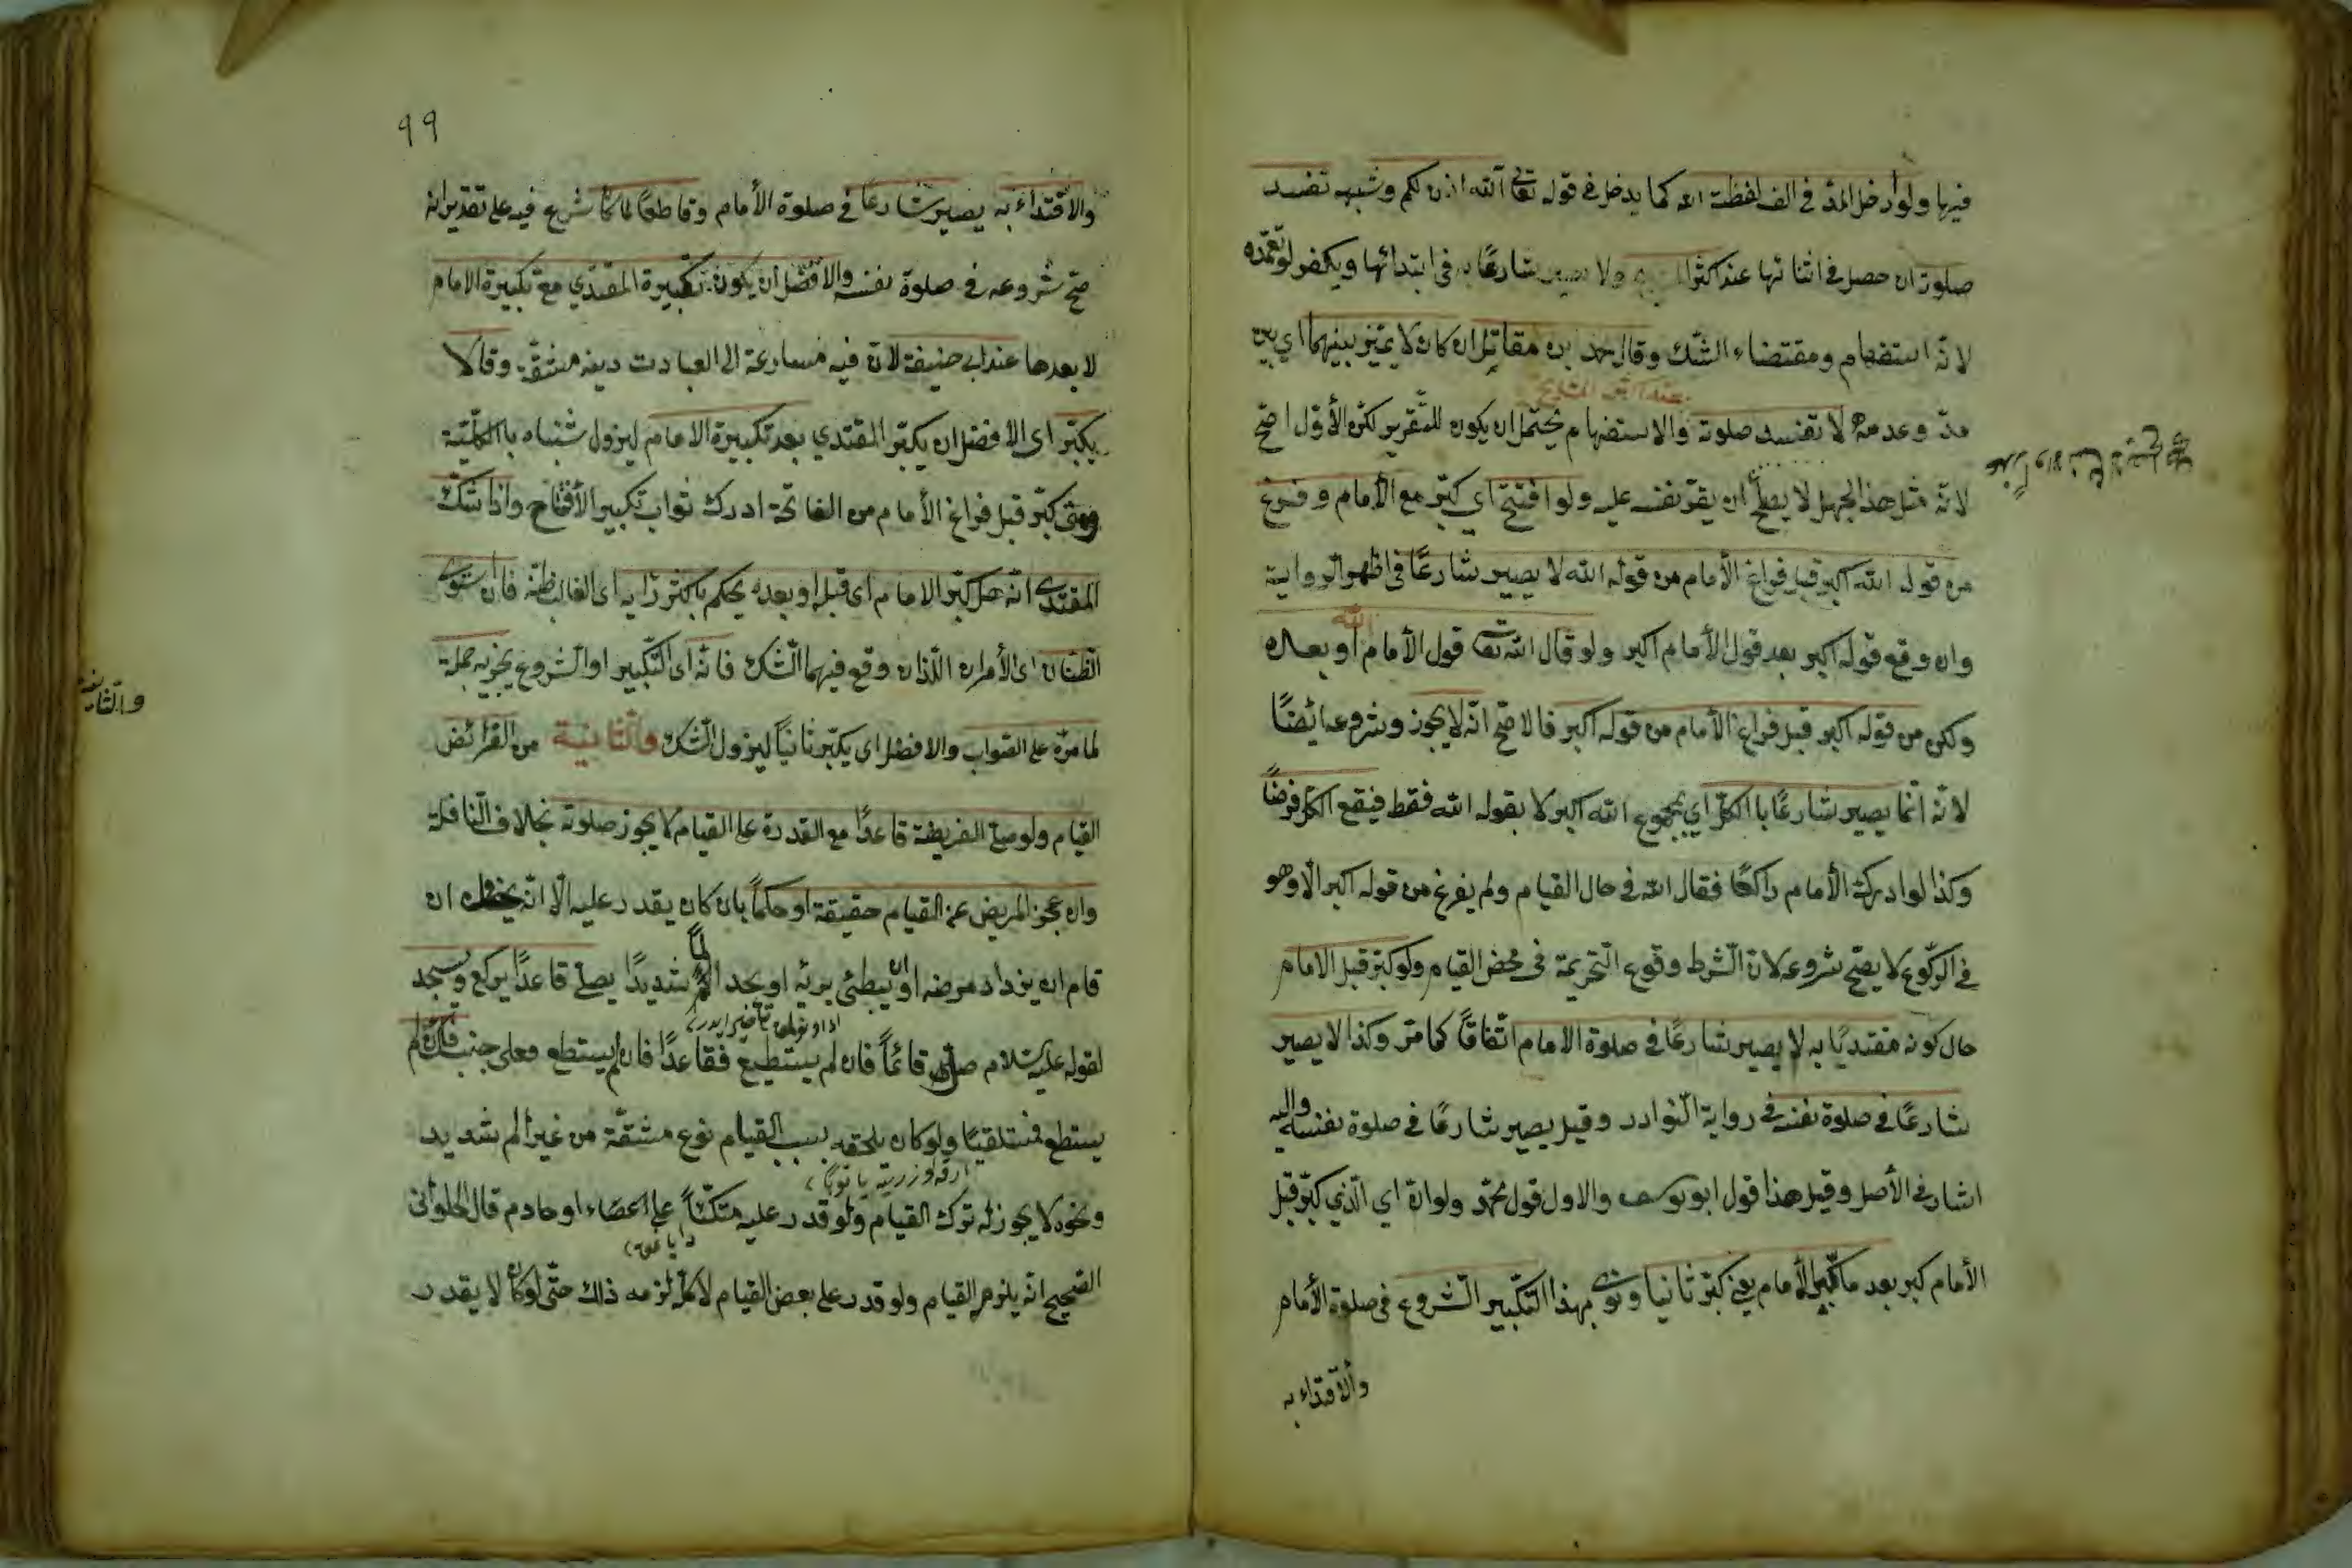 فيها ولو أدخل المدّ في الف لفظة الله كما يدخل في قوله تعالى آلله اذن لكم وشبهه تفسد
صلوته ان حصل في اثنائها عند اكثر ولا يصير شارعًا به في ابتدائها ويكفر لو تعمّده
لانّه استفهام ومقتضاه الشك وقال محمد بن مقاتل ان كان لا يميّز بينهما اي بين
عند اكثر المشايخ
مدّ وعدمه لا تفسد صلوته والاستفهام يحتمل ان يكون للتّقرير لكن الأوّل اصحّ
لانّه مثل هذا الجهل لا يصلح ان يقرّ نفسه عليه ولو افتتح اي كبّر مع الأمام وفرغ
من قوله الله اكبر قبل فراغ الأمام من قوله الله لا يصير شارعًا في اظهر الرواية
وان وقع قوله اكبر بعد قول الأمام اكبر ولو قال الله مع قول الأمام الله او بعده
ولكن من قوله اكبر قبل فراغ الأمام من قوله اكبر فالاصّح انّه لا يجوز وشروعه ايضًا
لانّه انّما يصير شارعًا باالكلّ اي بمجموع الله اكبر لا بقوله الله فقط فيقع الكلّ فرضًا
وكذا لو ادرك الأمام راكعًا فقال الله في حال القيام ولم يفرغ من قوله اكبر الّا وهو
في الركّوع لا يصّح شروعه لان الشّرط وقوع التّحريمة في محض القيام ولو كبّر قبل الامام
حال كونه مقتديًا به لا يصير شارعًا في صلوة الامام اتّفاقًا كما مرّ وكذا لا يصير
شارعًا في صلوة نفسه في رواية النّوادر وقيل يصير شارعًا في صلوة نفسه واليه
اشار في الأصل وقيل هذا قول ابو يوسف والاول قول محمّد ولو انّه اي الّذي كبّر قبل
الأمام كبر بعد ما كبّر الأمام يعني كبّر ثانيا ونوى بهذا التّكبير الشّروع في صلوة الأمام
والاقتداء به
٩٩
والاقتداء به يصير شارعًا في صلوة الأمام وقاطعًا لما كان شرع فيه على تقدير انه
صّح شروعه في صلوة نفسه والافضل ان يكون تكبيرة المقتدي مع تكبيرة الامام
لا بعدها عند ابي حنيفة لان فيه مسارعة الى العبادت وفيه مشقّة وقالا
يكبّر اى الافضل ان يكبّر المقتدي بعد تكبيرة الامام ليزول شتباه باالكلّيّة
ومتى كبّر قبل فراغ الأمام من الفاتحة ادرك ثواب تكبير الأفتتاح واذا شكّ
المقتدى انّه هل كبّر الامام اى قبله او بعده يحكم باكثر رأيه اى الغالب ظنّه فان استوى
الظّنّان اى الأمران اللّذان وقع فيهما الشّك فانّه اى التّكبير او الشّروع يجزيه حملة
لما مرّه على الصّواب والافضل اى يكبّر ثانيًا ليزول الشّك والثّانية من الفرائض
والثّانية
القيام ولو صلّى الفريضة قاعدًا مع القدرة على القيام لا يجوز صلوته بخلاف النّافلة
وان عجز المريض عن القيام حقيقة او حكمًا بان كان يقدر عليه الّا انّه يخاف ان
قام ان يزداد مرضه او ان يبطئ برئه او يجد المًا شديدًا يصلّى قاعدًا يركع ويسجد
لقوله عليه السّلام صلّى قائمًا فان لم يستطيع فقاعدًا فان لم يستطع فعلى جنب فان لم
يستطع فمستلقيًا ولو كان يلحقه بسبب القيام نوع مشقّة من غير الم شديد
ونحوه لا يجوز له ترك القيام ولو قدر عليه متكئًا على اعصاء او خادم قال الحلوانى
الصّحيح انّه يلزمه القيام ولو قدر على بعض القيام لا كلّه لزمه ذلك حتّى لو كان لا يقدر